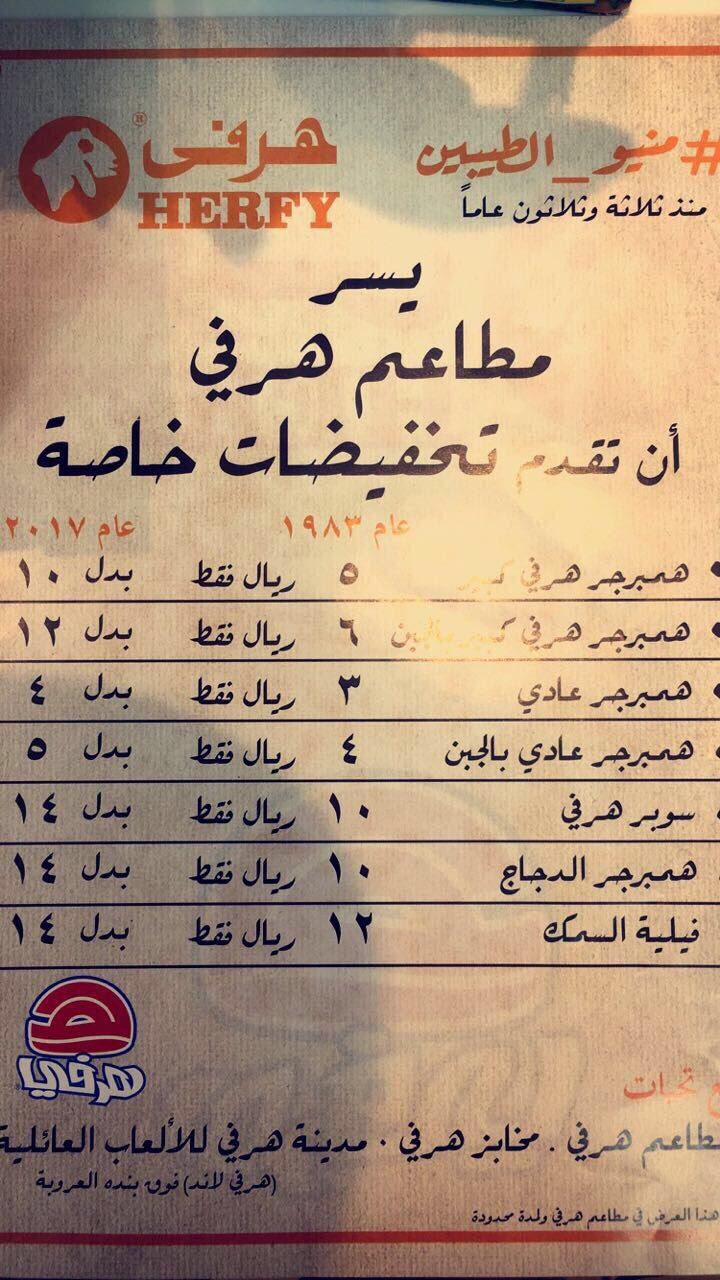 #منيو_الطيبين
هرفي
HERFY
منذ ثلاثة وثلاثون عاماً
يسر
مطاعم هرفي
أن تقدم تخفيضات خاصة
عام ١٩٨٣ عام ٢٠١٧
همبرجر هرفي كبير ٥ ريال فقط بدل ١٠
همبرجر هرفي كبير بالجبن ٦ ريال فقط بدل ١٢
همبرجر عادي ٣ ريال فقط بدل ٤
همبرجر عادي بالجبن ٤ ريال فقط بدل ٥
سوبر هرفي ١٠ ريال فقط بدل ١٤
همبرجر الدجاج ١٠ ريال فقط بدل ١٤
فيلية السمك ١٢ ريال فقط بدل ١٤
هرفي
تحيات
مطاعم هرفي . مخابز هرفي . مدينة هرفي للألعاب العائلية
(هرفي لاند) فوق بنده العروبة
هذا العرض في مطاعم هرفي ولمدة محدودة